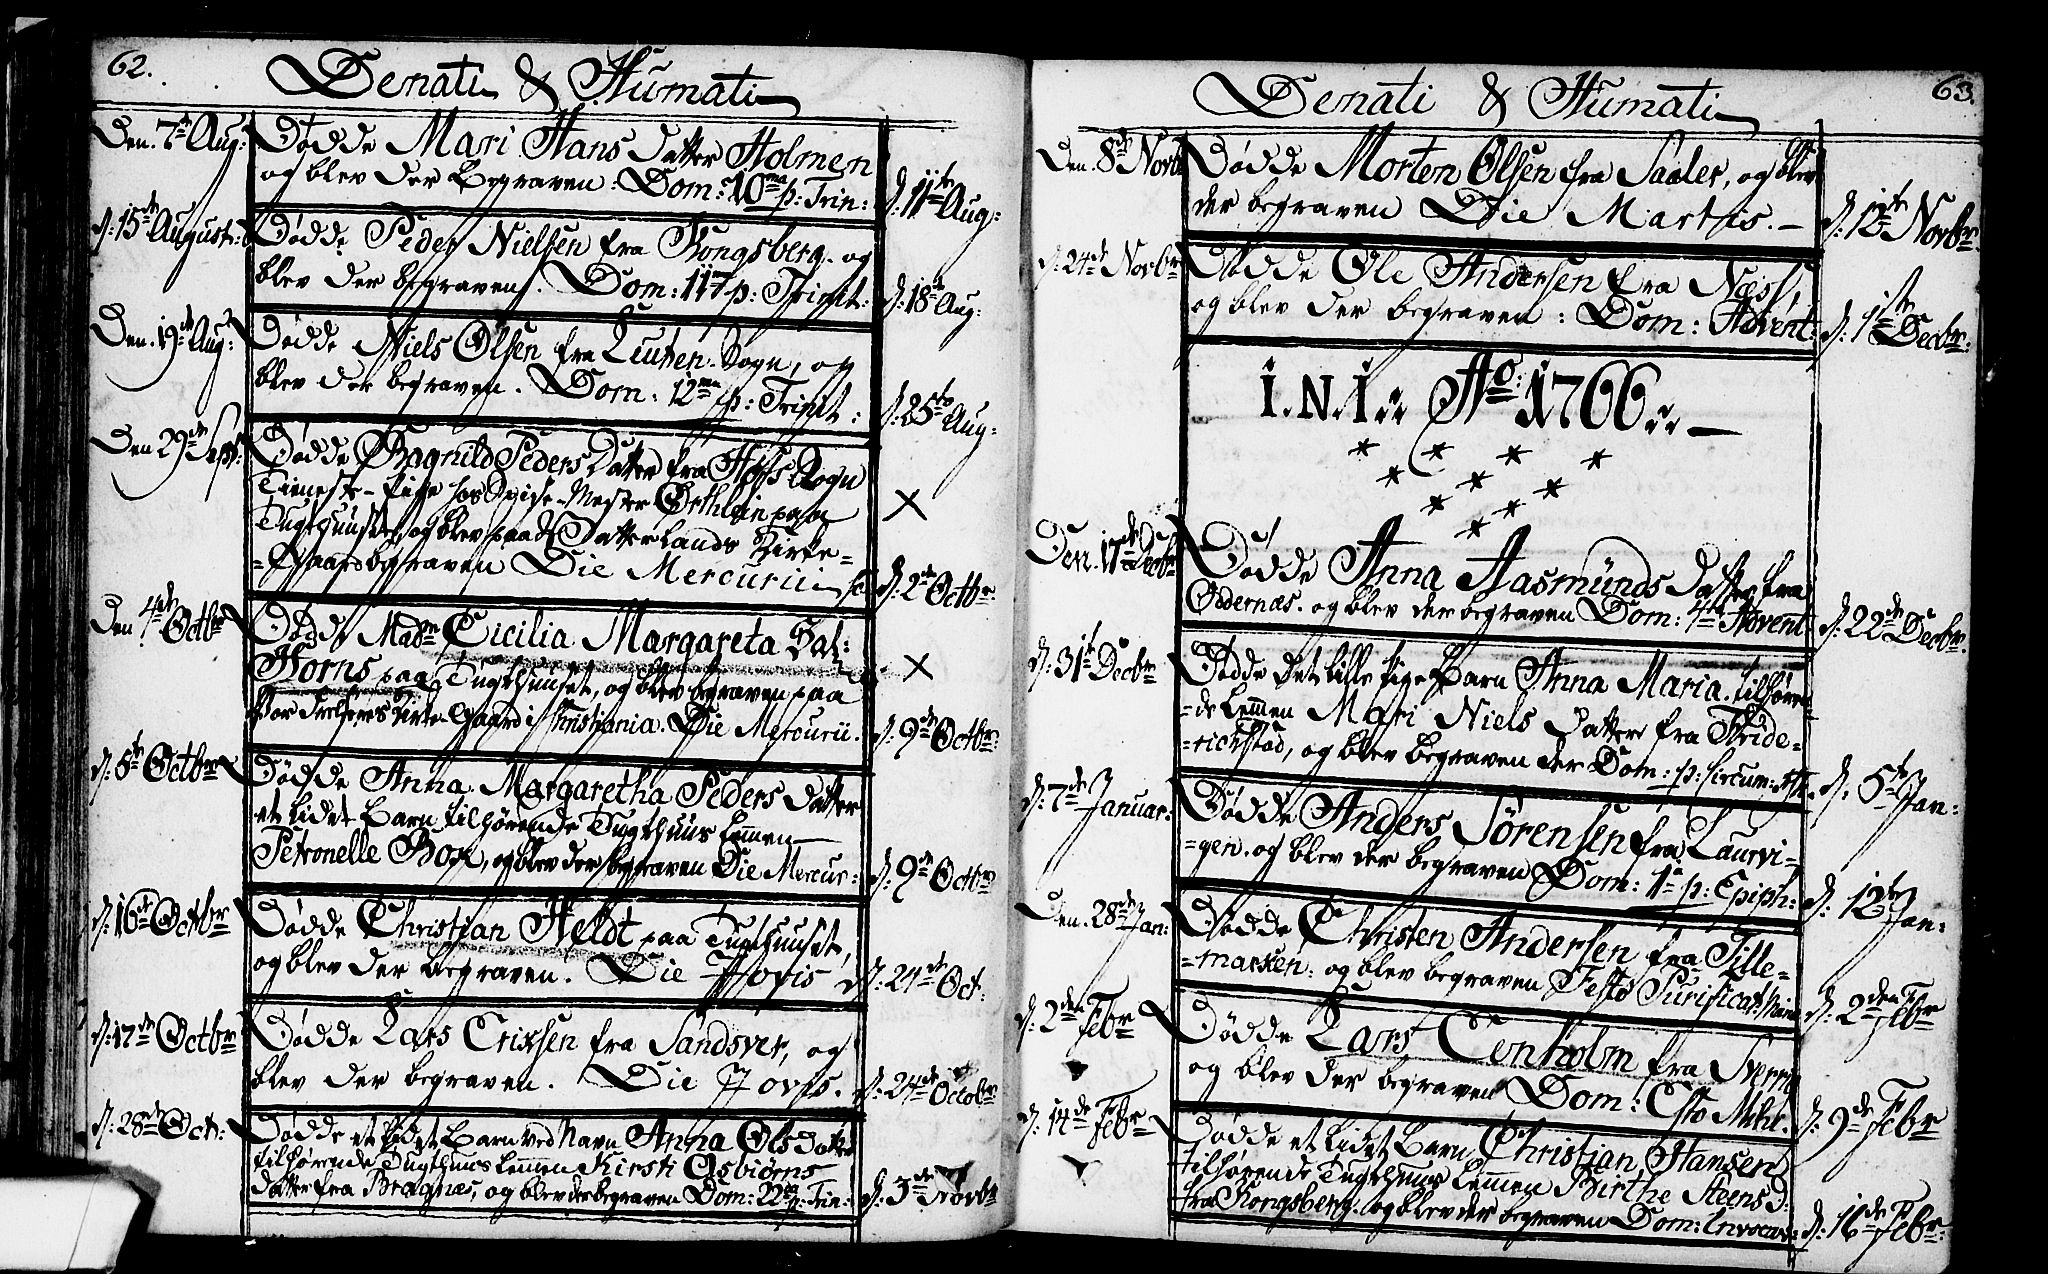 62.
Denati & Humati
Den. 7de Aug:
Dødde Mari Hans Datter Holmen
og blev der Begraven: Dom: 10ma p: Trin:
d: 11te Aug:
d: 15de August:
Dødde Peder Nielsen fra Kongsberg. og
blev der begraven. Dom: 11ma p: Trinit:
d: 18de Aug:
Den. 19de Aug:
Dødde Niels Olsen fra Leuten Sogn, og
blev der begraven. Dom: 12ma p: Trinit:
d: 25de Aug:
Den 29de Sept:
Dødde Ragnild Peders Datter fra Hofs Sogn
Tieneste-Pige hos Spise-Mester Orthlein paa
Tugthuuset, og blev paa Vatterlands Kirke-
-Gaard begraven Die Mercurii
× d: 2de Octbr
Den 4de Octbr
Dødde Madme Cicilia Margareta Bal:
Horns paa Tugthuuset, og blev begraven paa
Vor Frelseres Kirke-Gaard i Christiania. Die Mercurii.
× d: 9de Octbr:
d: 5te Octbr
Dødde Anna Margaretha Peders Datter
et lidet Barn tilhørende Tugthuus Lemmen
Petronelle Box, og blev der begraven Die Mercur:
d: 9de Octbr
d: 16de Octbr
Dødde Christian Heldt paa Tugthuuset,
og blev der begraven. Die Jovis
d: 24de Oct:
d: 17de Octbr
Dødde Lars Erixsen fra Sandsver, og
blev der begraven. Die Jovis.
d: 24de Octobr:
d: 28de Oct:
Dødde et lidet Barn ved Navn Anna Ols Datter
tilhørende Tugthuus Lemmen Kirsti Asbiørns
Datter fra Bragnæs, og blev der begraven Dom: 22da p: Trin:
d: 3de Novbr
63.
Denati & Humati
Den. 8de Novbr
Dødde Morten Olsen fra Saaler, og blev
der begraven Die Martis.
d: 12te Novbr
d: 24de Novbr
Dødde Ole Andersen fra Næss,
og blev der begraven: Dom: Advent:
d: 1ste Decbr:
I. N. I:: Ao: 1766::
Den. 17de Decbr
Dødde Anna Aasmünds Datter fra
Oddernæs. og blev der begraven Dom: 4ta Advent
d: 22de Decbr.
d: 31te Decbr
Dødde det lille Pige Barn Anna Maria. tilhøren-
-de Lemmen Mari Niels Datter fra Fride-
-richstad, og blev begraven der Dom: p: Circum:
d: 5te Jan:
d: 7de Januar:
Dødde Anders Sørensen fra Laurvi-
-gen. og blev der begraven Dom: 1a p: Epiph:
d: 12te Jan:
Den. 28de Jan:
Dødde Christen Andersen fra Tille-
-marken: og blev begraven Festo Purificat: Mariæ
d: 2den Febr
d: 2den Febr
Dødde Lars Cenholm fra Sverrig
og blev der begraven Dom: Esto Mihi.
d: 9de Febr
d: 14de Febr
Dødde et lidet Barn Christian Hansen
tilhørende Tugthuus Lemmen Birthe Steens D:
fra Kongsberg. og blev der begraven Dom: Invocav:
d: 16de Febr: